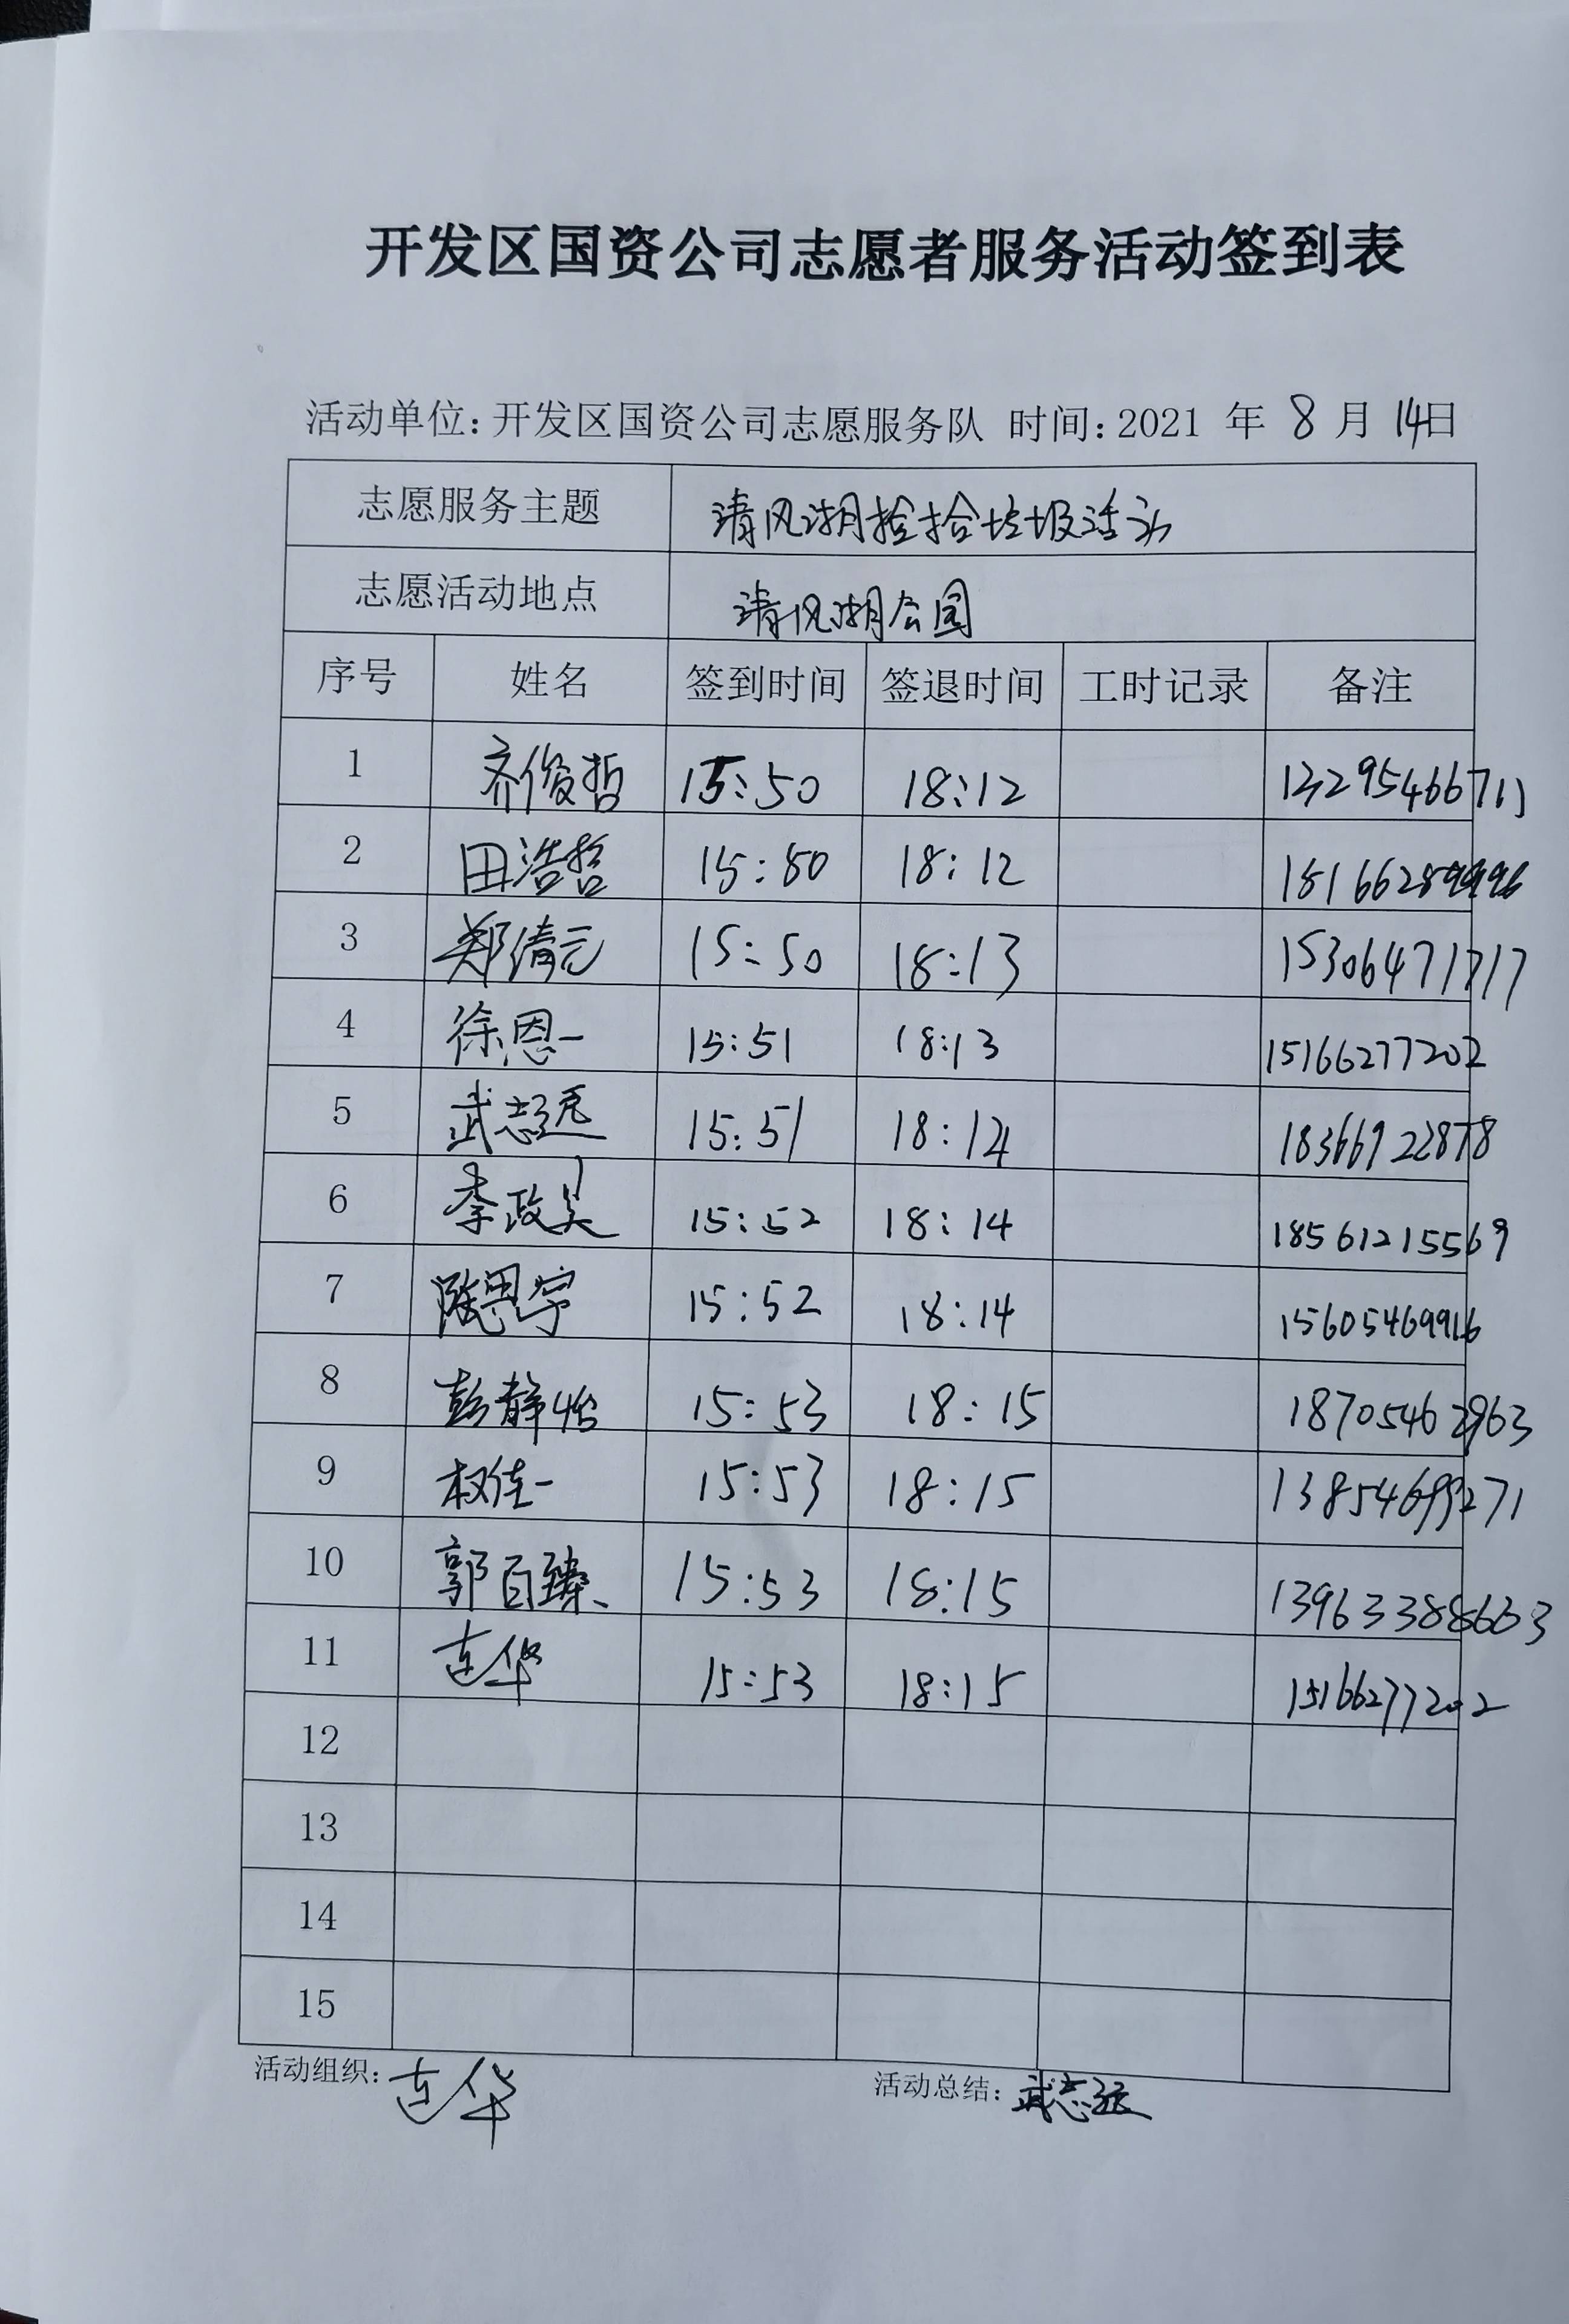 开发区国资公司志愿者服务活动签到表
活动单位: 开发区国资公司志愿服务队 时间: 2021 年 8 月 14日
志愿服务主题 清风湖捡拾垃圾活动
志愿活动地点 清风湖公园
序号 姓名 签到时间 签退时间 工时记录 备注
1 齐俊哲 15:50 18:12 13295466711
2 田浩哲 15:50 18:12
3 郑倩元 15:50 18:13 15306471717
4 徐恩一 15:51 18:13 15166277202
5 武志远 15:51 18:14 18366922878
6 李政昊 15:52 18:14 18561215569
7 陈思宇 15:52 18:14 15605469916
8 彭静怡 15:53 18:15 18705462963
9 权佳一 15:53 18:15
10 郭百臻 15:53 18:15 13963388663
11 连华 15:53 18:15 15166277202
12
13
14
15
活动组织: 连华 活动总结: 武志远